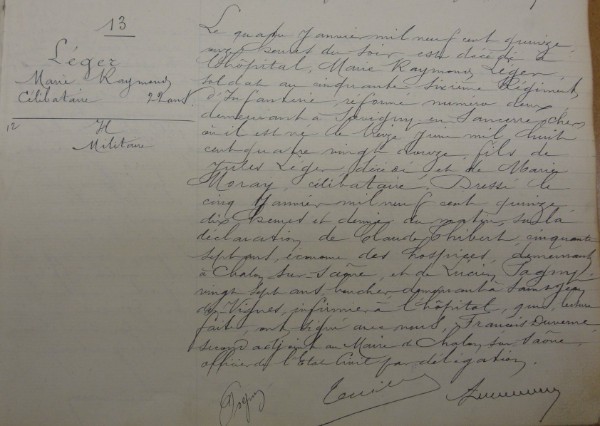 13
Léger
Marie Raymond
Célibataire 22 ans
12 H
Militaire
Le quatre Janvier mil neuf cent quinze,
onze heures du soir est décédé à
l'hôpital, Marie Raymond Léger,
soldat au cinquante sixième Régiment
d'Infanterie, réformé numéro deux
demeurant à Savigny en Sancerre, Cher
où il est né le onze Juin mil huit
cent quatre vingt douze, fils de
Jules Léger, décédé et de Marie
Moray, célibataire. Dressé le
cinq Janvier mil neuf cent quinze
dix heures et demie du matin, sur la
déclaration de Claude Thibert, cinquante
sept ans, économe des hospices, demeurant
à Chalon sur Saône, et de Lucien Pagny
vingt sept ans, boucher demeurant à
des Vignes, infirmier à l'hôpital, qui, lecture
faite, ont signé avec nous, Francois
second adjoint au Maire de Chalon sur Saône
officier de l'Etat Civil par délégation.